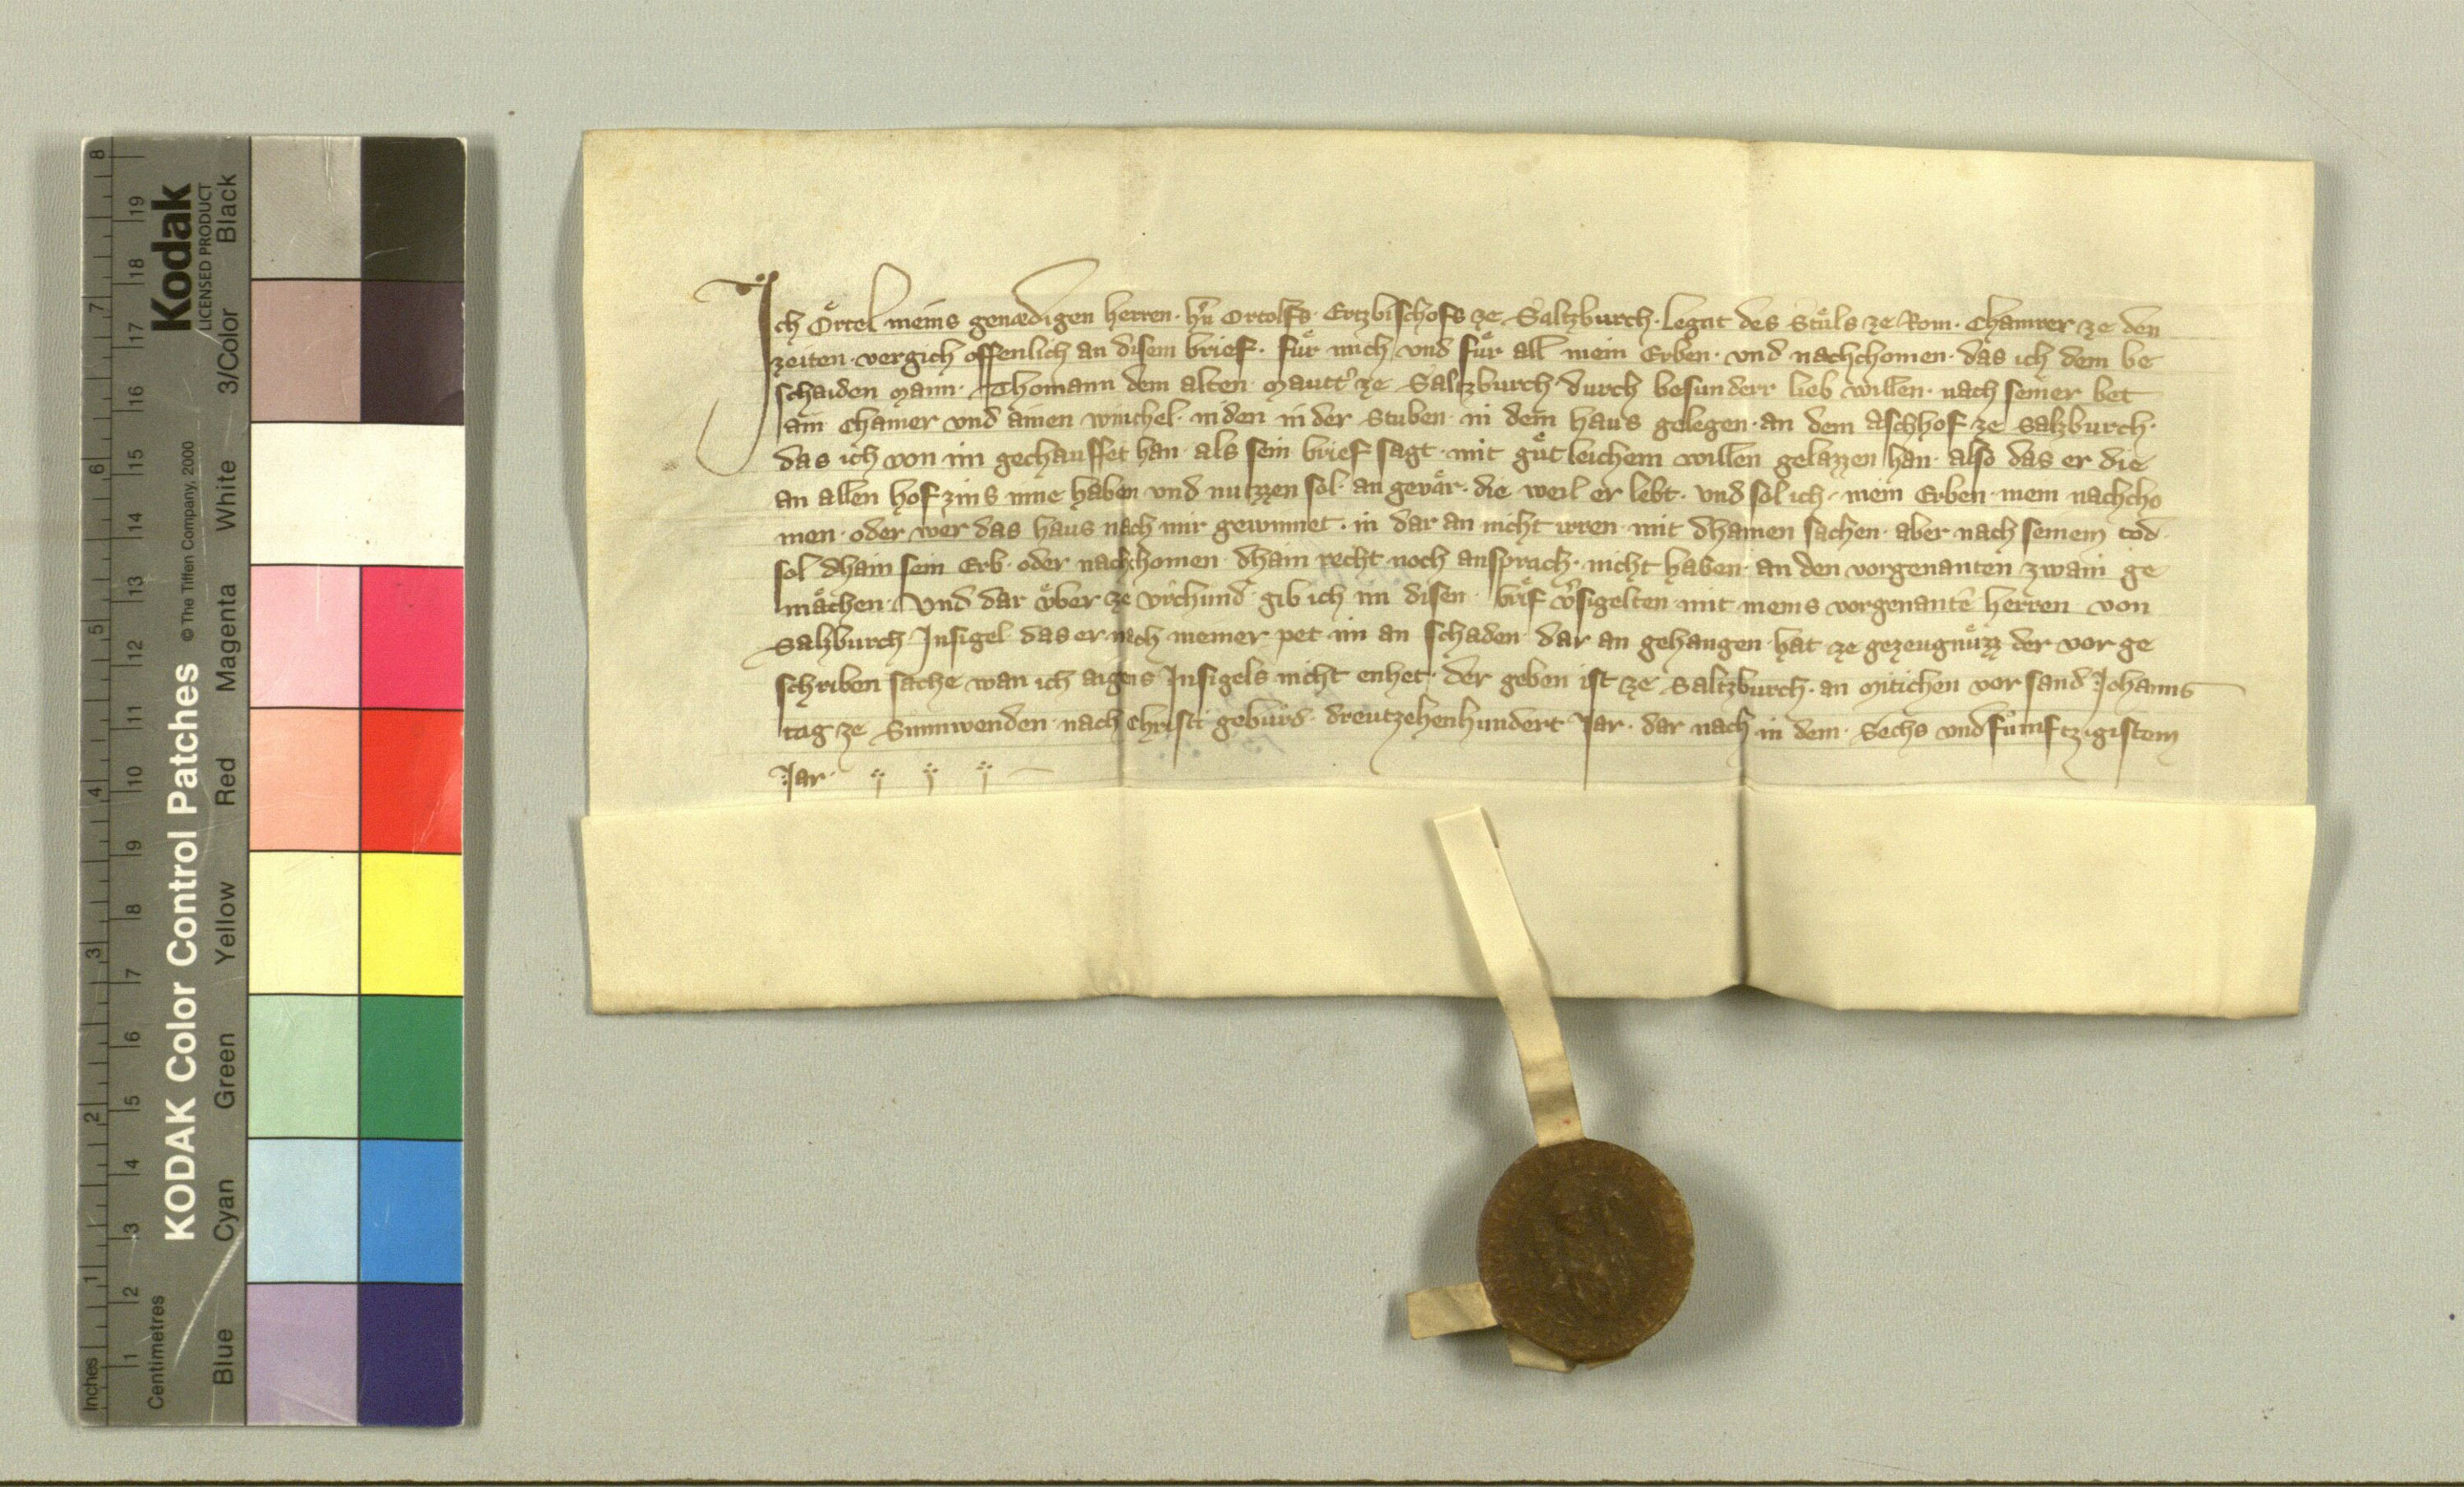 Ich Örtel meins genædigen herren · hˀn Ortolfs · Ertzbischofs ze Saltzburch · legat des Stůls ze Rom · Chamrer ze den
zeiten · vergich offenlich an disem brief · fuͤr mich vnd fuͤr all mein Erben · vnd nachchomen · das ich dem be
schaiden mann · Thomann dem alten mauttˀ ze Saltzburch · durch besunderr lieb willen · nach seiner bet
ain Chamer vnd ainen winchel · niden in der Stuben · in dem haus gelegen · an dem Aschhof ze Salzburch ·
das ich von im gechauffet han · als sein brief sagt · mit guͤtleichem willen gelazzen han · also das er die
an allen hofzins inne haben vnd nutzzen sol · an gevaͤr · die weil er lebt · vnd sol ich · mein Erben · mein nachcho
men · oder wer das haus nach mir gewinnet · in dar an nicht irren · mit dhainen sachen · aber nach seinem tod
sol dhain sein Erb · oder nachchomen · dhain recht noch ansprach · nicht haben · an den vorgenanten zwain ge
maͤchen · Vnd dar vͤber ze vrchund · gib ich im disen brif vˀsigelten · mit meins vorgenantē herren von
Salzburch Insigel · das er nach meiner pet im an schaden · dar an gehangen hat · ze gezeugnuͤzz der vor ge
schriben sache wan ich aigens Insigels nicht enhet · der geben ist ze Saltzburch · an mitichen vor sand Johanns
tag ze Sunnwenden · nach Christi gebuͤrd · dreutzehenhundert Jar · dar nach in dem · Sechs vnd fuͤmftzigistem
Jar ·
KODAK Color Control Patches © The Tiffen Company, 2000
Kodak
LICENSED PRODUCT
Black
3/Color
White
Magenta
Red
Yellow
Green
Cyan
Blue
Inches 1 2 3 4 5 6 7 8
Centimetres 1 2 3 4 5 6 7 8 9 10 11 12 13 14 15 16 17 18 19